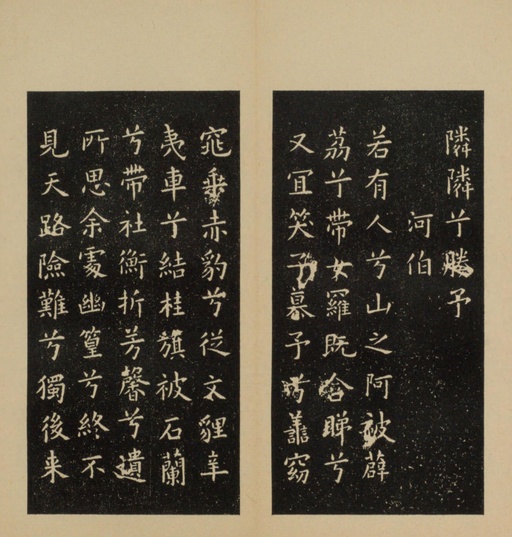 隣隣兮媵予
河伯
若有人兮山之阿被薜
荔兮帶女羅既含睇兮
又宜笑子慕予兮善窈
窕乘赤豹兮從文貍辛
夷車兮結桂旗被石蘭
兮帶杜衡折芳馨兮遺
所思余處幽篁兮終不
見天路險難兮獨後来